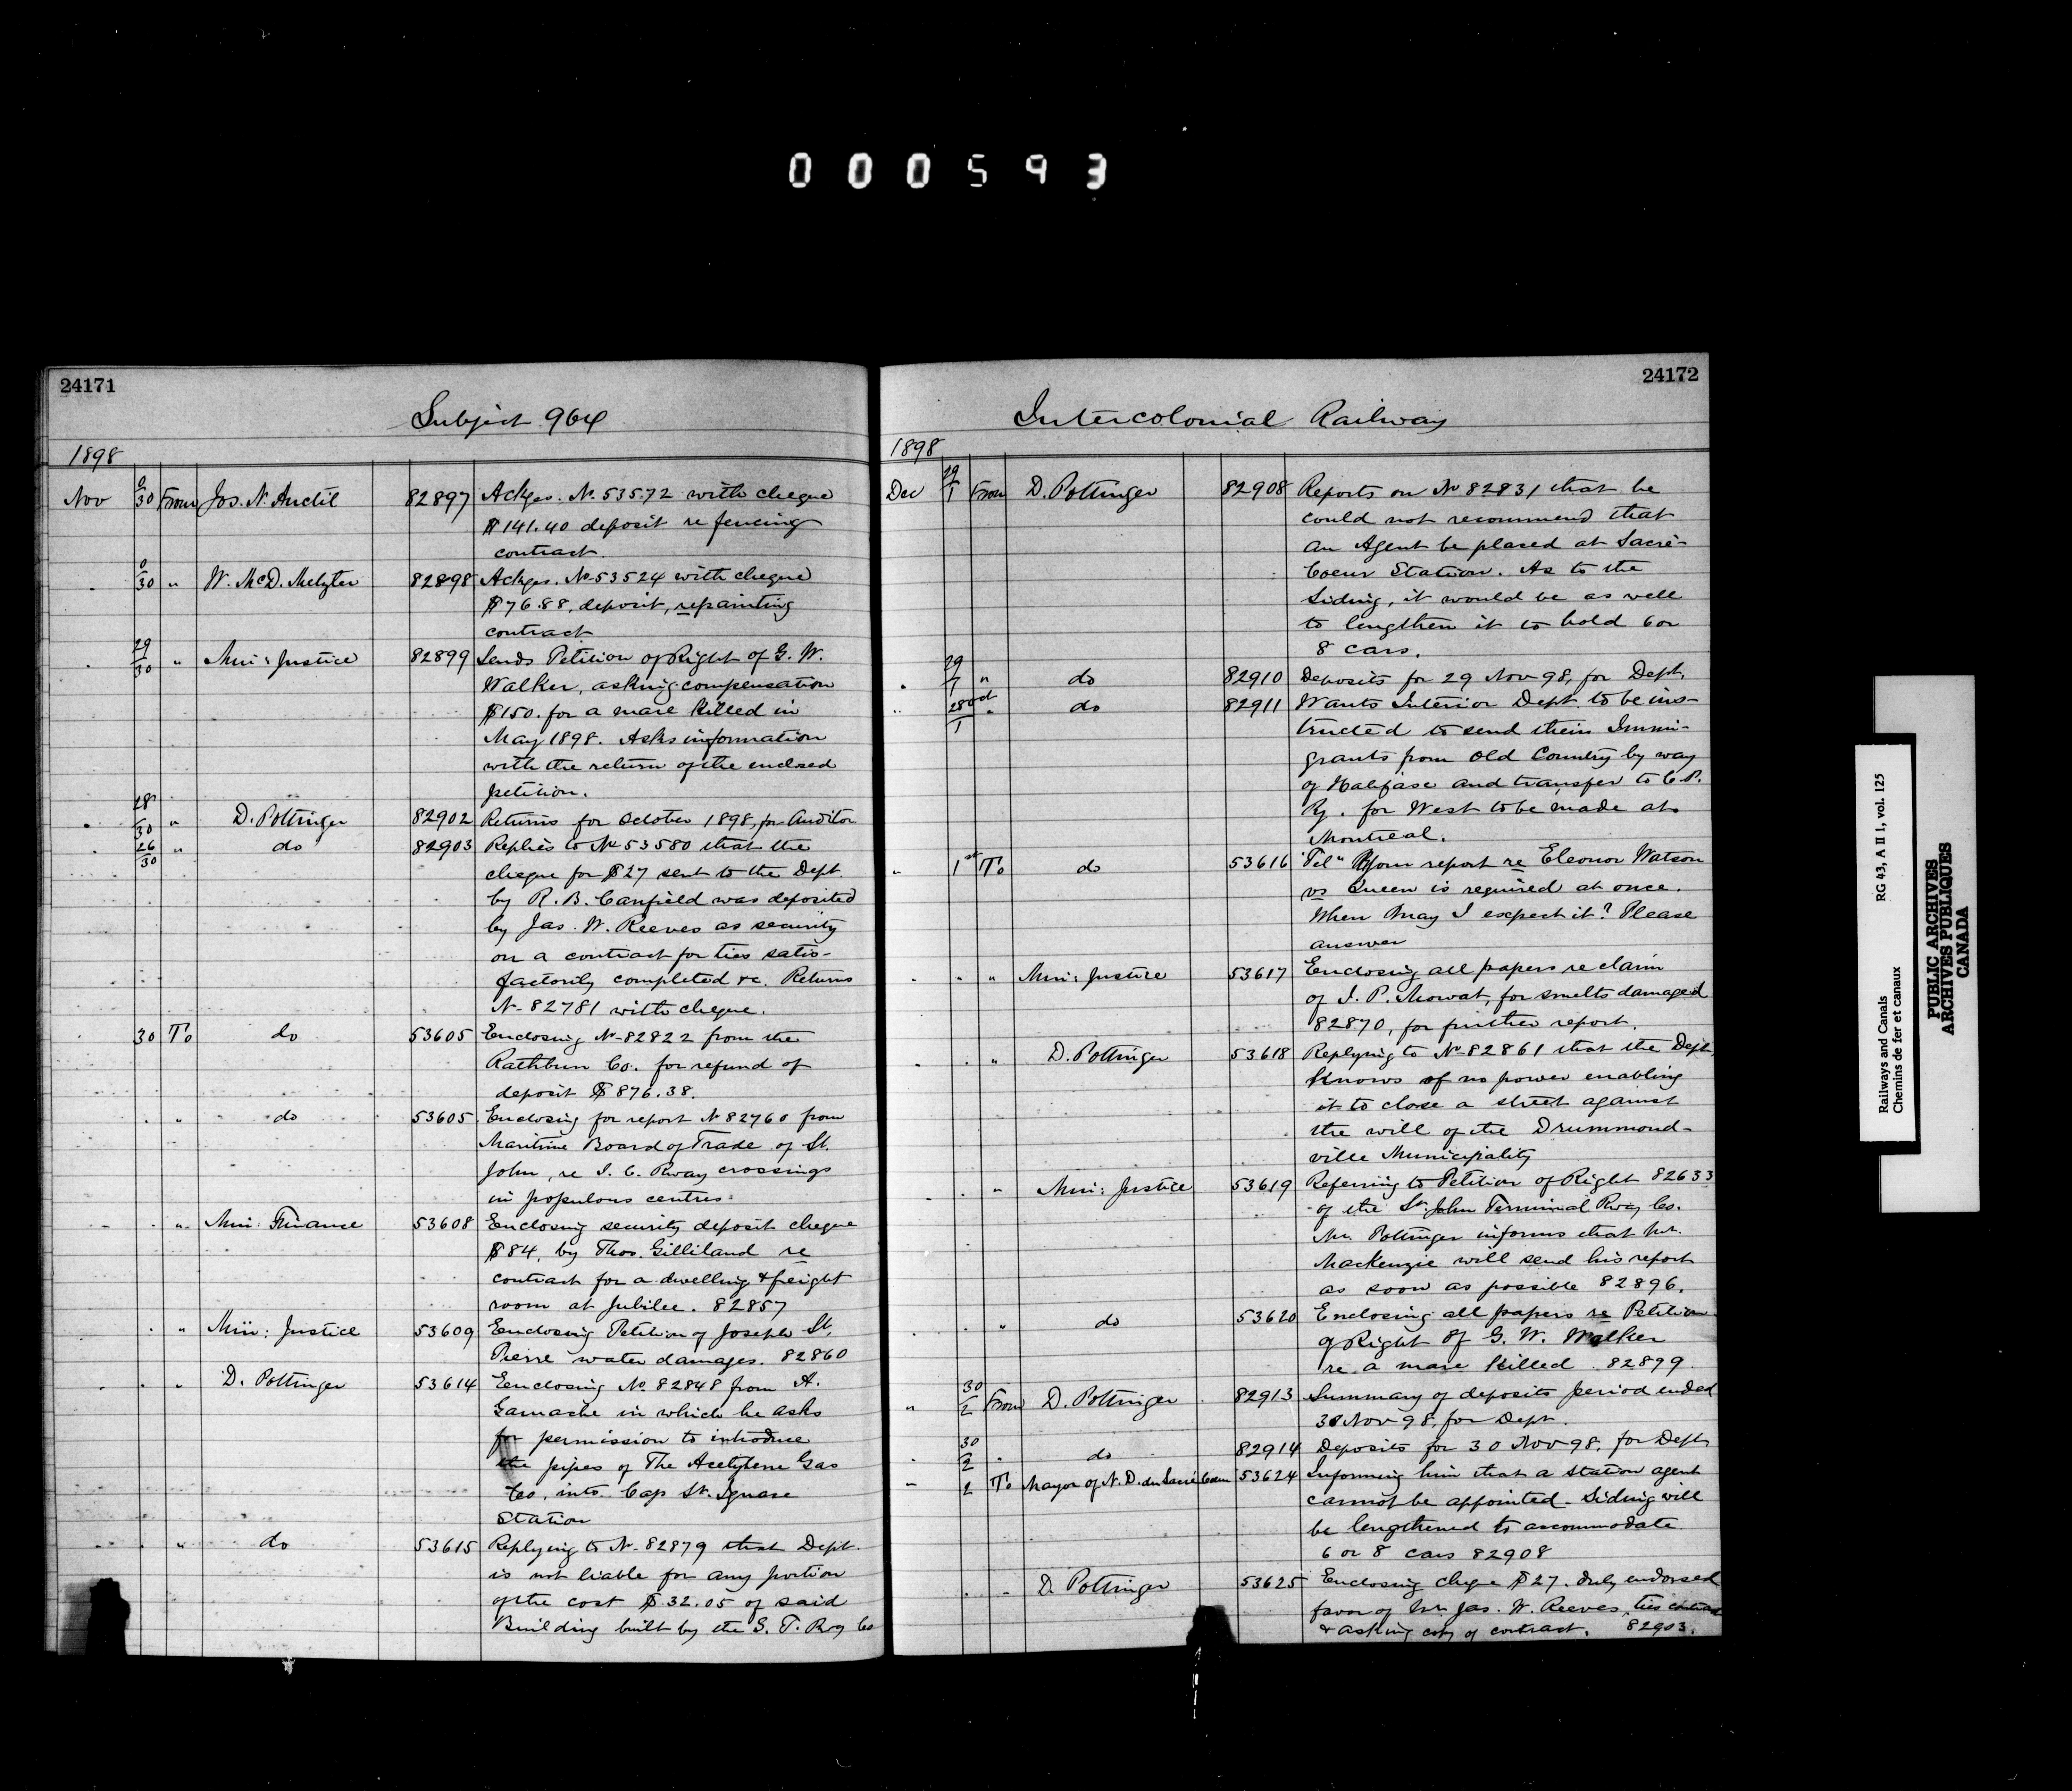 000593
24171
Subject 964
1898
Nov 0/30 From Jos. N. Anctil 82897 Ackges. No 53572 with cheque
$141.40 deposit re fencing
contract.
0/30 " W. McD. 82898 Ackges. No 53524 with cheque
$76.88, deposit, repainting
contract
29/30 " Min: Justice 82899 Sends Petition of Right of G. W.
Walker, asking compensation
$150. for a mare killed in
May 1898. Asks information
with the return of the enclosed
petition.
28/30 " D. Pottinger 82902 Returns for October 1898, for Auditor
26/30 " do 82903 Replies to No 53580 that the
cheque for $27 sent to the Dept.
by R. B. Canfield was deposited
by Jas. W. Reeves as security
on a contract for ties satis-
factorily completed &c. Returns
No 82781 with cheque.
30 To do 53605 Enclosing No 82822 from the
Rathbun Co. for refund of
deposit $876.38.
" " do 53605 Enclosing for report No 82760 from
Maritime Board of Trade of St.
John, re I. C. Rway crossings
in populous centres.
" " Min: Finance 53608 Enclosing security deposit cheque
$84, by Thos. Gilliland re
contract for a dwelling & freight
room at Jubilee. 82857
" " Min: Justice 53609 Enclosing Petition of Joseph St.
Pierre water damages. 82860
" " D. Pottinger 53614 Enclosing No 82848 from A.
Gamache in which he asks
for permission to introduce
the pipes of The Acetylene Gas
Co. into Cap St. Ignace
Station
" " do 53615 Replying to No 82879 that Dept.
is not liable for any portion
of the cost $32.05 of said
Building built by the G. T. Rwy Co
24172
Intercolonial Railway
1898
Dec 29/1 From D. Pottinger 82908 Reports on No 82831 that he
could not recommend that
an Agent be placed at Sacré-
Coeur Station. As to the
Siding, it would be as well
to lengthen it to hold 6 or
8 cars.
" 29/1 " do 82910 Deposits for 29 Nov 98, for Dept.
" 28/1 " do 82911 Wants Interior Dept to be ins-
tructed to send their Immi-
grants from Old Country by way
of Halifax and transfer to C.P.
Ry. for West to be made at
Montreal.
" 1st To do 53616 "Tel" Your report re Eleonor Watson
vs Queen is required at once.
When may I expect it? Please
answer
" " " Min: Justice 53617 Enclosing all papers re claim
of J. P. Mowat, for smelts damaged
82870, for further report.
" " D. Pottinger 53618 Replying to No 82861 that the Dept.
knows of no power enabling
it to close a street against
the will of the Drummond-
ville Municipality
" " Min: Justice 53619 Referring to Petition of Right 82633
of the St. John Terminal Rway Co.
Mr. Pottinger informs that Mr.
Mackenzie will send his report
as soon as possible 82896.
" " do 53620 Enclosing all papers re Petition
of Right of G. W. Walker
re a mare killed. 82899.
" 30/2 From D. Pottinger 82913 Summary of deposits period ended
30 Nov 98, for Dept.
" 30/2 " do 82914 Deposits for 30 Nov 98, for Dept
" 2 To Mayor of N. D. du Sacré Coeur 53624 Informing him that a station agent
cannot be appointed - Siding will
be lengthened to accommodate
6 or 8 cars 82908
" " D. Pottinger 53625 Enclosing cheque $27. duly endorsed
favor of Mr. Jas. W. Reeves, ties contract
& asking copy of contract. 82903.
Railways and Canals RG 43, A II 1, vol. 125
Chemins de fer et canaux
PUBLIC ARCHIVES
ARCHIVES PUBLIQUES
CANADA